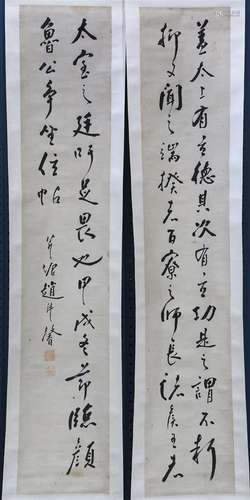 蓋太上有立德其次有立功是之謂不朽
抑又聞之端揆者百寮之師長諸侯王者
太室之廷吁足畏也甲戌冬節臨顏
魯公爭坐位帖
趙